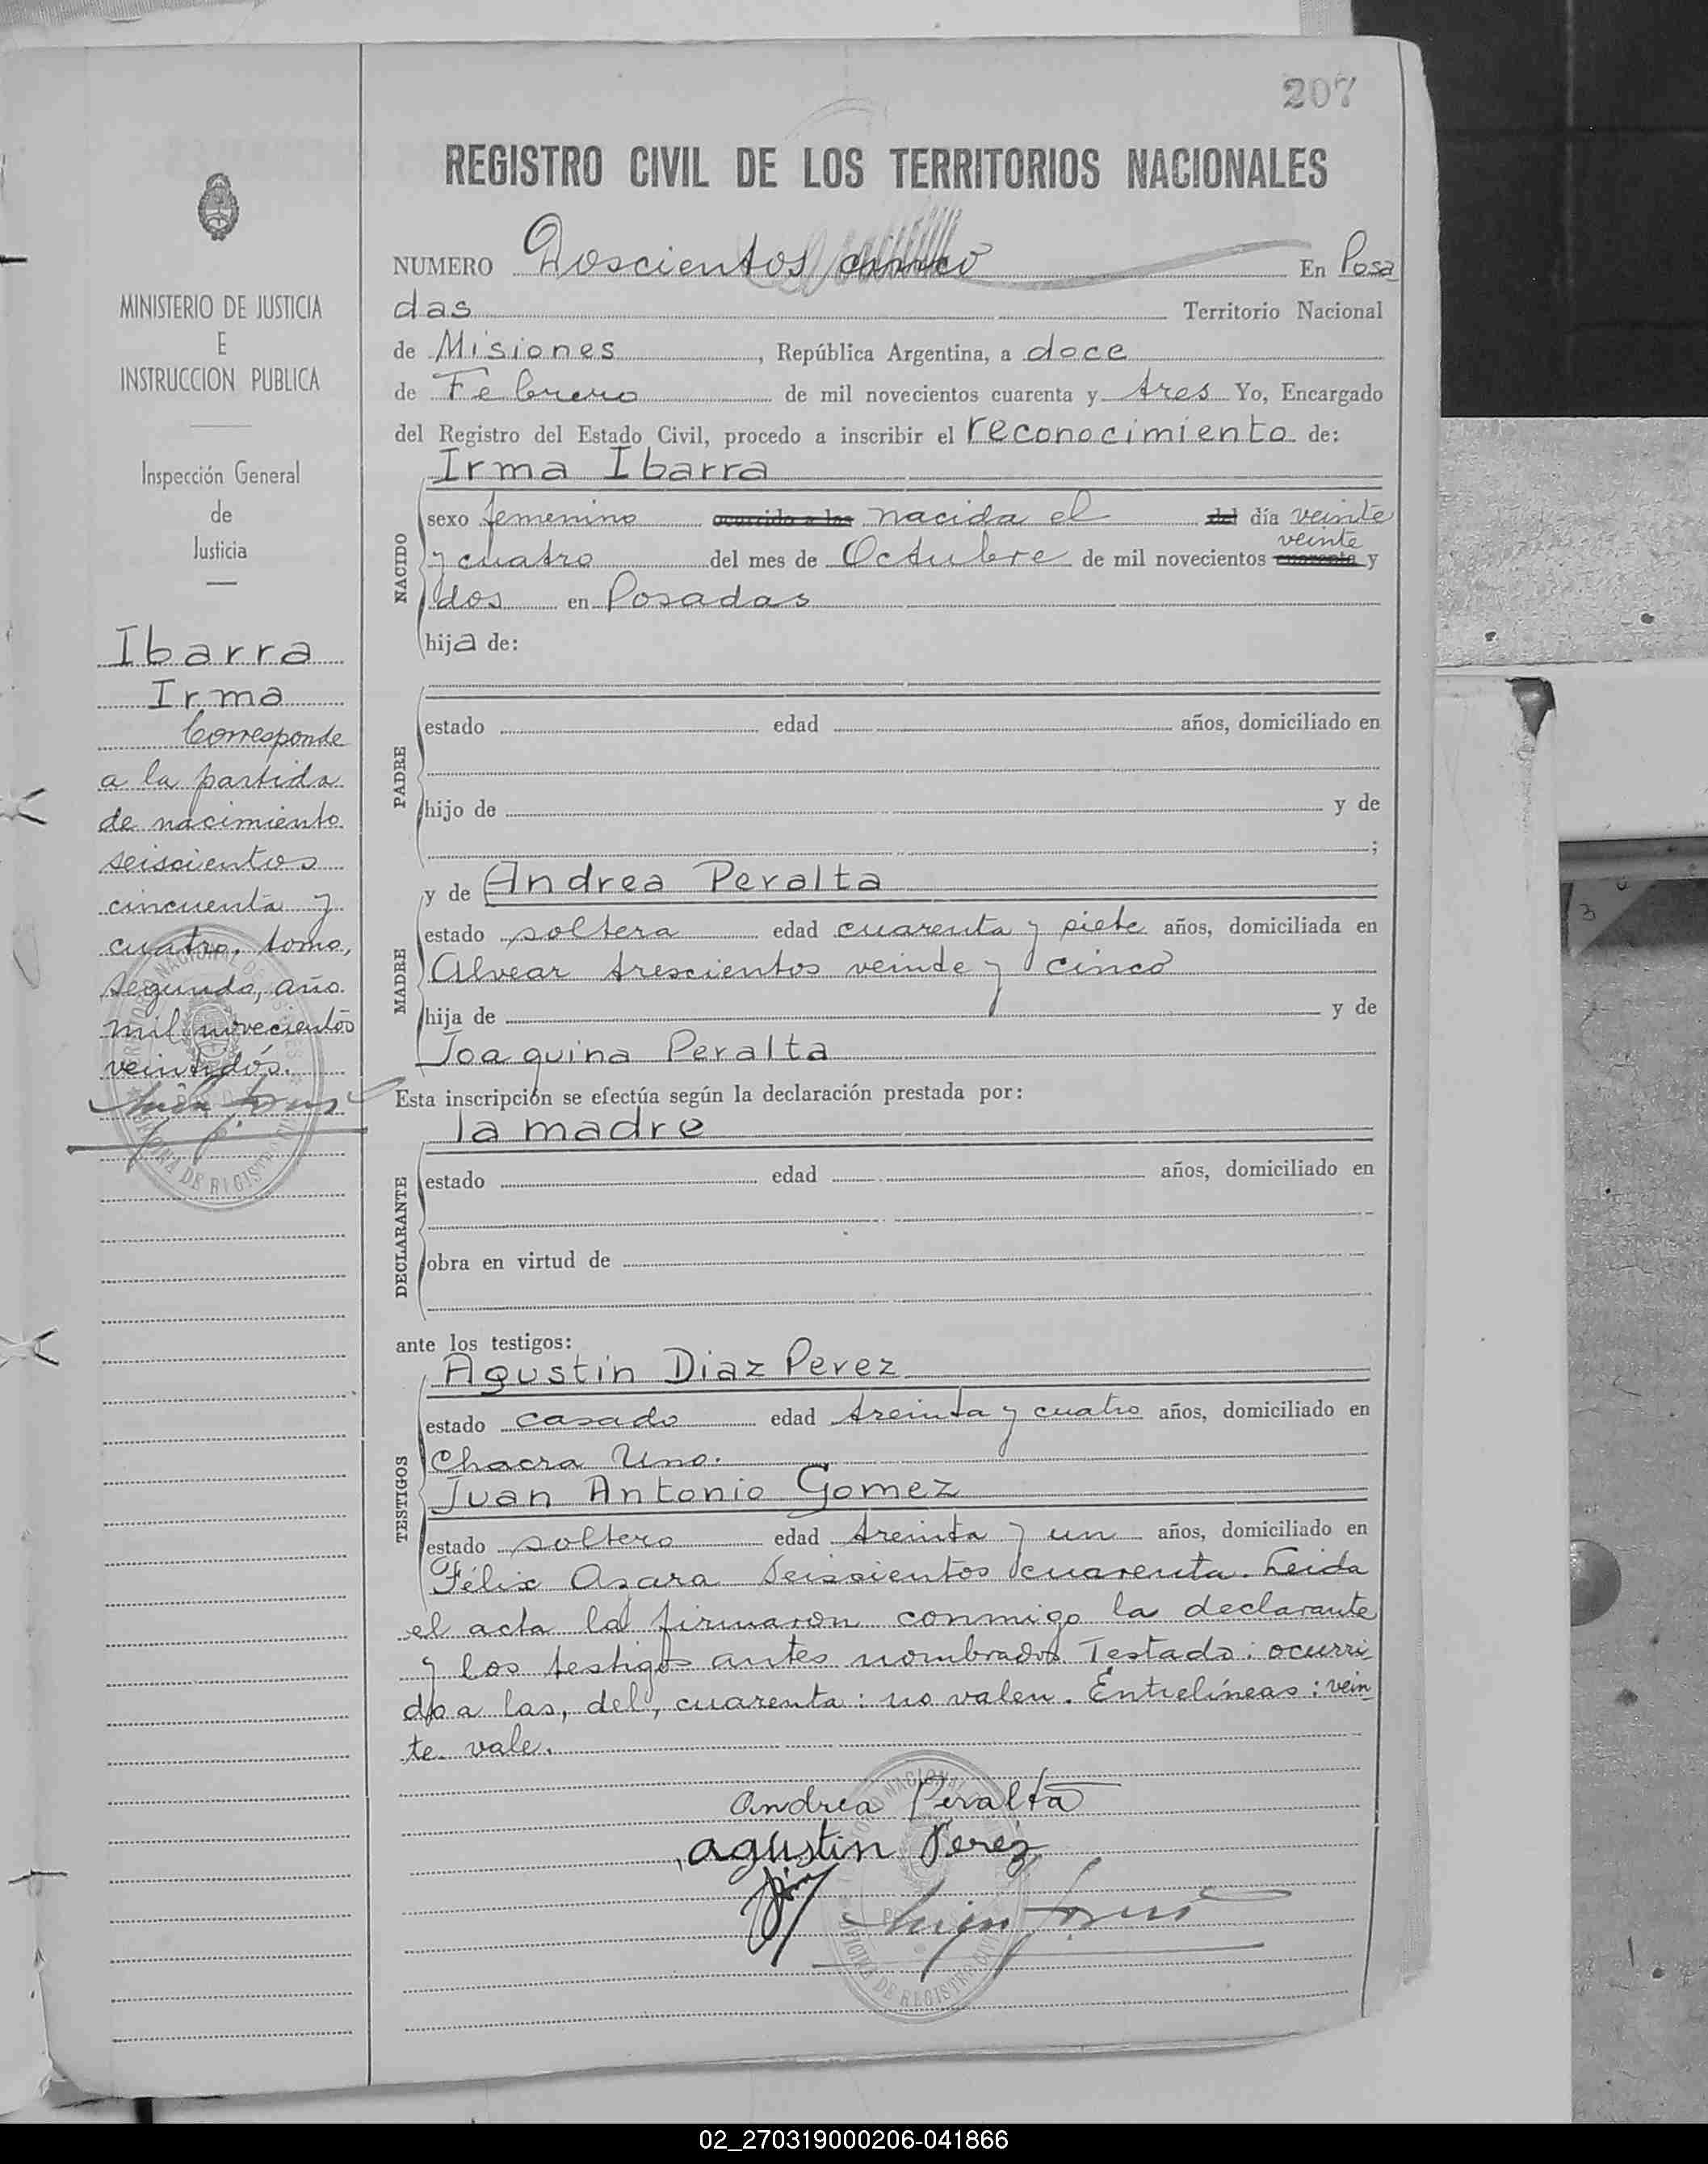 207
REGISTRO CIVIL DE LOS TERRITORIOS NACIONALES
NUMERO Doscientos cinco En Posa
das Territorio Nacional
de Misiones, República Argentina, a doce
de Febrero de mil novecientos cuarenta y tres Yo, Encargado
del Registro del Estado Civil, procedo a inscribir el reconocimiento de:
Irma Ibarra
NACIDO
sexo femenino ocurrido a las nacida el del día veinte
veinte
y cuatro del mes de Octubre de mil novecientos cuarenta y
dos en Posadas
hija de:
PADRE
estado edad años, domiciliado en
hijo de y de
;
y de Andrea Peralta
MADRE
estado soltera edad cuarenta y siete años, domiciliada en
Alvear trescientos veinte y cinco
hija de y de
Joaquina Peralta
Esta inscripción se efectúa según la declaración prestada por:
la madre
DECLARANTE
estado edad años, domiciliado en
obra en virtud de
ante los testigos:
Agustin Diaz Perez
TESTIGOS
estado casado edad treinta y cuatro años, domiciliado en
Chacra Uno.
Juan Antonio Gomez
estado soltero edad treinta y un años, domiciliado en
Félix Azara Seiscientos cuarenta. Leida
el acta la firmaron conmigo la declarante
y los testigos antes nombrados Testado: ocurri
do a las, del, cuarenta: no valen. Entrelíneas: vein
te vale.
Andrea Peralta
agustin Perez
MINISTERIO DE JUSTICIA
E
INSTRUCCION PUBLICA
Inspección General
de
Justicia
Ibarra
Irma
Corresponde
a la partida
de nacimiento
seiscientos
cincuenta y
cuatro, tomo,
segundo, año
mil novecientos
veintidós.
02_270319000206-041866